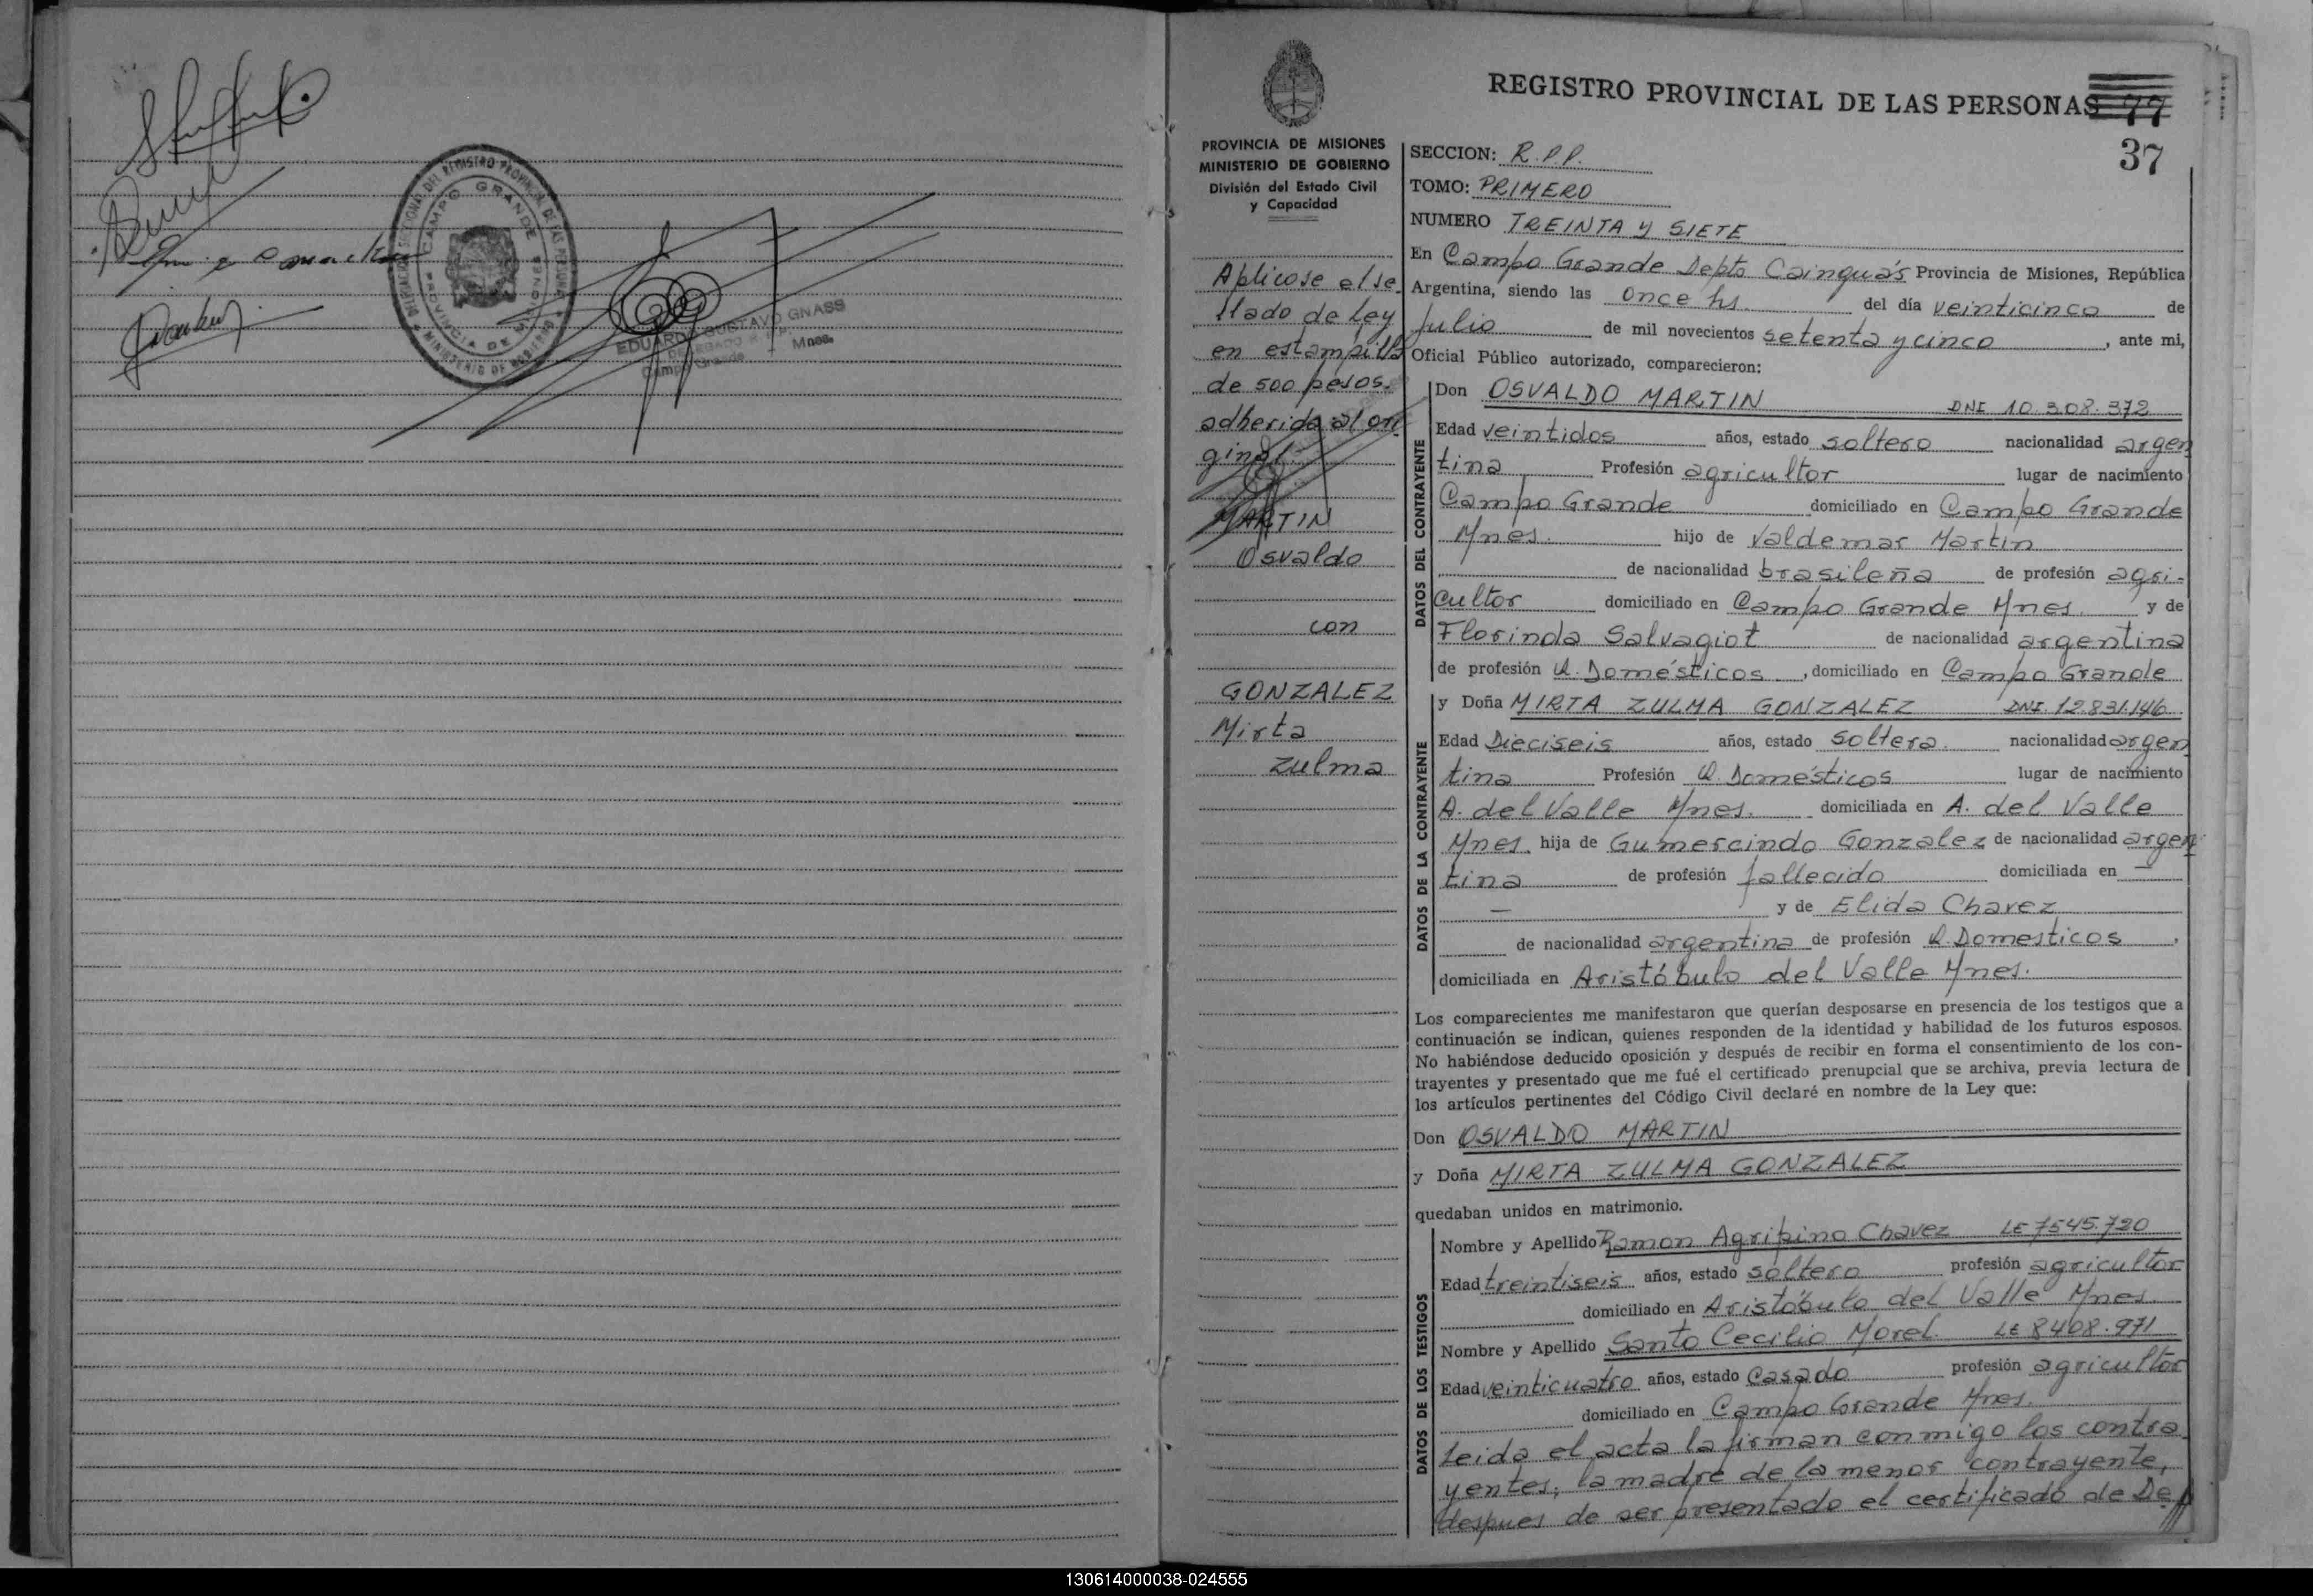 DELEGACION SECCIONAL DEL REGISTRO PROVINCIAL DE LAS PERSONAS
CAMPO GRANDE
PROVINCIA DE MISIONES
MINISTERIO DE GOBIERNO
EDUARDO GUSTAVO GNASS
DELEGADO R. P. P.
Campo Grande - Mnes.
REGISTRO PROVINCIAL DE LAS PERSONAS 77
37
PROVINCIA DE MISIONES
MINISTERIO DE GOBIERNO
División del Estado Civil
y Capacidad
Aplicose el se
llado de Ley
en estampilla
de 500 pesos.
adherida al ori
ginal.
MARTIN
Osvaldo
con
GONZALEZ
Mirta
Zulma
SECCION: R.P.P.
TOMO: PRIMERO
NUMERO TREINTA Y SIETE
En Campo Grande Depto Cainguás Provincia de Misiones, República
Argentina, siendo las Once hs. del día veinticinco de
Julio de mil novecientos setenta y cinco, ante mi,
Oficial Público autorizado, comparecieron:
DATOS DEL CONTRAYENTE
Don OSVALDO MARTIN DNI 10.308.372
Edad veintidos años, estado soltero nacionalidad argen
tina Profesión agricultor lugar de nacimiento
Campo Grande domiciliado en Campo Grande
Mnes. hijo de Valdemar Martin
de nacionalidad brasileña de profesión agri-
cultor domiciliado en Campo Grande Mnes. y de
Florinda Salvagiot de nacionalidad argentina
de profesión Q. Domésticos, domiciliado en Campo Grande
DATOS DE LA CONTRAYENTE
y Doña MIRTA ZULMA GONZALEZ DNI. 12.831.146
Edad Dieciseis años, estado soltera. nacionalidad argen
tina Profesión Q. Domésticos lugar de nacimiento
A. del Valle Mnes. domiciliada en A. del Valle
Mnes. hija de Gumercindo Gonzalez de nacionalidad argen
tina de profesión fallecido domiciliada en —
— y de Elida Chavez
de nacionalidad argentina de profesión Q. Domesticos,
domiciliada en Aristóbulo del Valle Mnes.
Los comparecientes me manifestaron que querían desposarse en presencia de los testigos que a
continuación se indican, quienes responden de la identidad y habilidad de los futuros esposos.
No habiéndose deducido oposición y después de recibir en forma el consentimiento de los con-
trayentes y presentado que me fué el certificado prenupcial que se archiva, previa lectura de
los artículos pertinentes del Código Civil declaré en nombre de la Ley que:
Don OSVALDO MARTIN
y Doña MIRTA ZULMA GONZALEZ
quedaban unidos en matrimonio.
DATOS DE LOS TESTIGOS
Nombre y Apellido Ramon Agripino Chavez LE 7545.720
Edad treintiseis años, estado soltero profesión agricultor
domiciliado en Aristóbulo del Valle Mnes.
Nombre y Apellido Santo Cecilio Morel LE 8408.971
Edad veinticuatro años, estado Casado profesión agricultor
domiciliado en Campo Grande Mnes.
Leida el acta la firman conmigo los contra
yentes; la madre de la menor contrayente,
despues de ser presentado el certificado de De
130614000038-024555